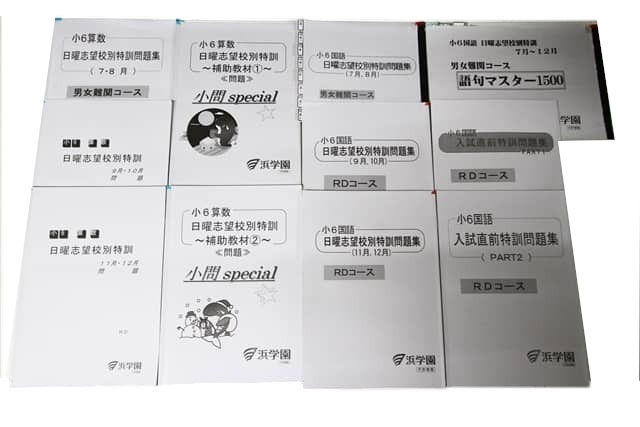 小6算数
日曜志望校別特訓問題集
(7・8月)
男女難関コース
小6算数
日曜志望校別特訓
〜補助教材①〜
≪問題≫
小問special
浜学園
小6国語
日曜志望校別特訓問題集
(7月、8月)
男女難関コース
小6国語 日曜志望校別特訓
7月〜12月
男女難関コース
語句マスター1500
浜学園
日曜志望校別特訓
9月・10月
問題
小6国語
日曜志望校別特訓問題集
(9月、10月)
RDコース
小6国語
入試直前特訓問題集
PART1
RDコース
日曜志望校別特訓
11月・12月
問題
RD
浜学園
小6算数
日曜志望校別特訓
〜補助教材②〜
≪問題≫
小問special
浜学園
小6国語
日曜志望校別特訓問題集
(11月、12月)
RDコース
浜学園
小6国語
入試直前特訓問題集
(PART2)
RDコース
浜学園